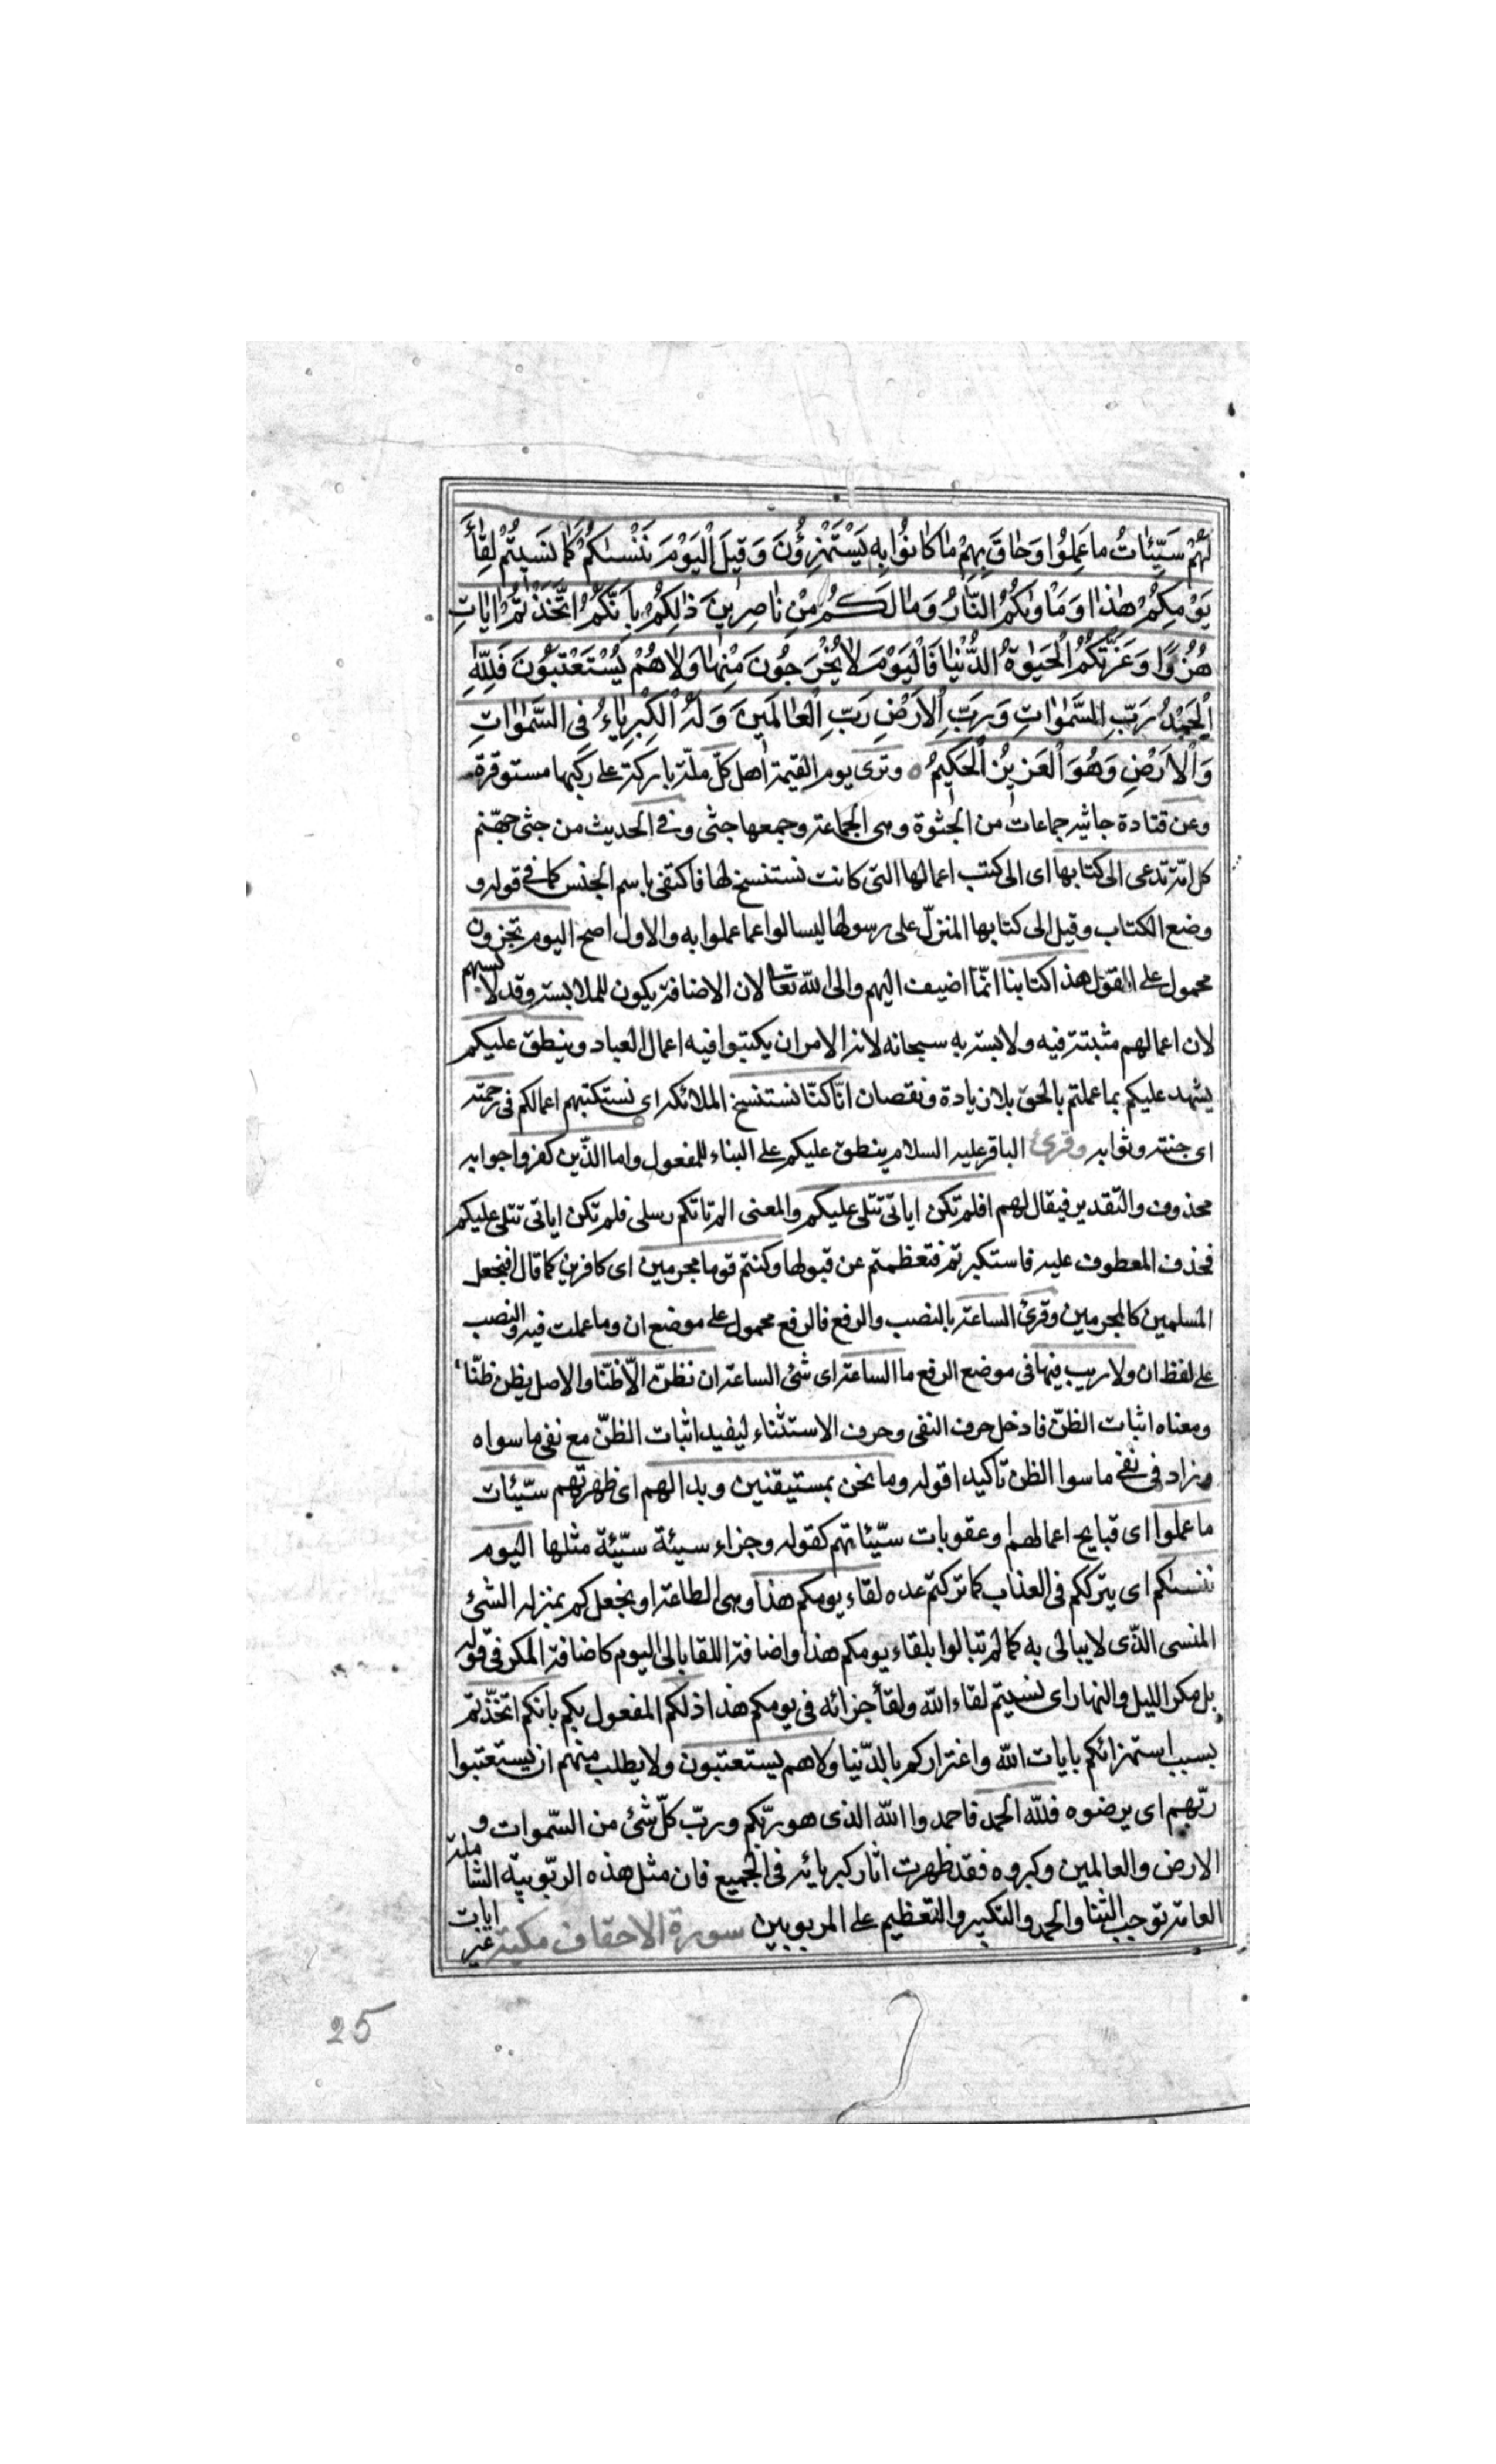 لَهُمْ سَيِّئٰاتُ ما عَمِلُوا وَحٰاقَ بِهِمْ مٰا كٰانُوا بِهِ يَسْتَهْزِؤُنَ وَقِيلَ الْيَوْمَ نَنْسٰىكُمْ كَمٰا نَسَيتُمْ لِقٰاۤءَ
يَوْمِكُمْ هٰذٰا وَمَاْوٰىكُمُ النّٰارُ وَمٰا لَكُمْ مِنْ نٰاصِرِينَ ذٰلِكُمْ بِاَنَّكُمُ اتَّخَذْتُمْ اٰيٰاتِ
هُزُوًا وَغَرَّتْكُمُ الْحَيٰوةُ الدُّنْيٰا فَالْيَوْمَ لاٰ يُخْرَجُونَ مِنْهٰا وَلاٰ هُمْ يُسْتَعْتَبُونَ فَلِلّٰهِ
الْحَمْدُ رَبِّ السَّمٰوٰاتِ وَرَبِّ الْاَرْضِ رَبِّ الْعٰالَمِينَ وَلَهُ الْكِبْرِيٰاءُ فِى السَّمٰوٰاتِ
وَالْاَرْضِ وَهُوَ الْعَزِيزُ الْحَكِيمُ ه وترى يوم القيمة اهل كلّ ملّة باركة على ركبها مستوفزة
وعن قتادة جاثية جماعات من الجثوة وهى الجماعة وجمعها جثى وفى الحديث من جثى جهّنم
كل امّة تدعى الى كتابها اى الى كتب اعمالها التى كانت نستنسخ لها فاكتفى باسم الجنس كما فى قوله و
وضع الكتاب وقيل الى كتابها المنزلّ على رسولها ليسالوا عما عملوا به والاول اصح اليوم تجزون
محمول على القول هذا كتابنا انمّا اضيف اليهم والى الله تعا لان الاضافة يكون للملابسة وقد لابسهم
لان اعمالهم مثبتة فيه ولابسة به سبحانه لانه الامر ان يكتبوا فيه اعمال العباد وينطق عليكم
يشهد عليكم بما عملتم بالحق بلا زيادة ونقصان انّا كنّا نستنسخ الملائكة اى نستكتبهم اعمالكم فى رحمته
اى جنته وثوابه وقرئ الباقر عليه السلام ينطق عليكم على البناء للمفعول واما الذّين كفروا جوابه
محذوف والتقدير فيقال لهم افلم تكن اياتى تتلى عليكم والمعنى الم تاتكم رسلى فلم تكن اياتى تتلى عليكم
فحذف المعطوف عليه فاستكبرتم فتعظمتم عن قبولها وكنتم قوما مجرمين اى كافرين كما قال افنجعل
المسلمين كالمجرمين وقرئ الساعة بالنصب والرفع فالرفع محمول على موضع ان وما عملت فيه والنصب
على لفظ ان ولا ريب فيها فى موضع الرفع ما الساعة اى شئ الساعة ان نظنّ الّا ظنّا والاصل يظن ظنّا
ومعناه اثبات الظنّ فادخل حرف النفى وحرف الاستثناء ليفيد اثبات الظنّ مع نفى ما سواه
وزاد فى نفى ما سوا الظن تاكيدا قوله وما نحن بمستيقنين وبدا لهم اى ظهر تهم سيّئات
ما عملوا اى قبايح اعمالهم او عقوبات سيّئاتهم كقوله وجزاء سيئة سيّئة مثلها اليوم
ننسىكم اى يترككم فى العذاب كما تركتم عده لقاء يومكم هذا وهى الطاعة او نجعل كم بمنزلة الشئ
المنسى الذّى لا يبالى به كما لم تبالوا بلقاء يومكم هذا واضافة اللقا بالى اليوم كاضافة المكر فى قوله
بل مكر الليل والنهار اى نسيتم لقاء الله ولقأ جزائه فى يومكم هذا ذلكم المفعول بكم بانكم اتخّذتم
بسبب استهزائكم بايات الله واغتراركم بالدّنيا ولاهم يستعتبون ولا يطلب منهم ان يستعتبوا
ربّهم اى يرضوه فللّه الحمد فاحمدوا الله الذى هو ربّكم وربّ كلّ شئ من السّموات و
الارض والعالمين وكبروه فقد ظهرت اثار كبريائه فى الجميع فان مثل هذه الربّوبيّة الشاملة
العامة توجب الثنا والحمد والتكبير والتعظيم على المربوبين سورة الاحقاف مكية غير ايات
25